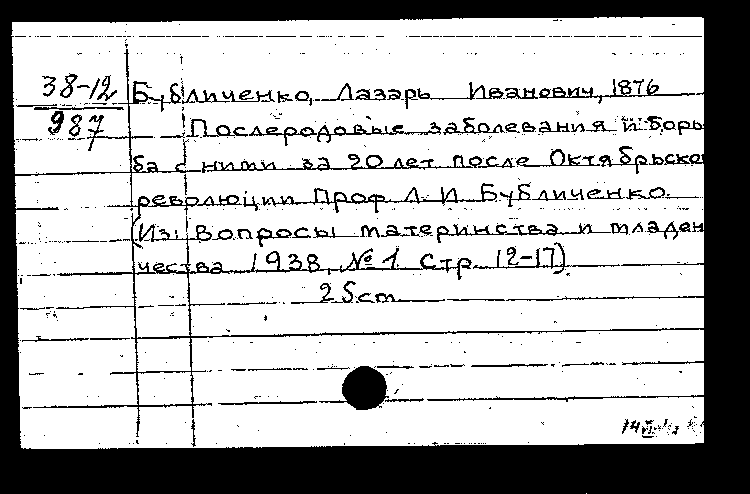 38-12
987
Бубличенко, Лазарь Иванович, 1876
Послеродовые заболевания и борь
ба с ними за 20 лет после Октябрьско
революции Проф. Л. И. Бубличенко.
(Из: Вопросы материнства и младен
чества 1938, № 1 Стр. 12-17).
25 cm
14